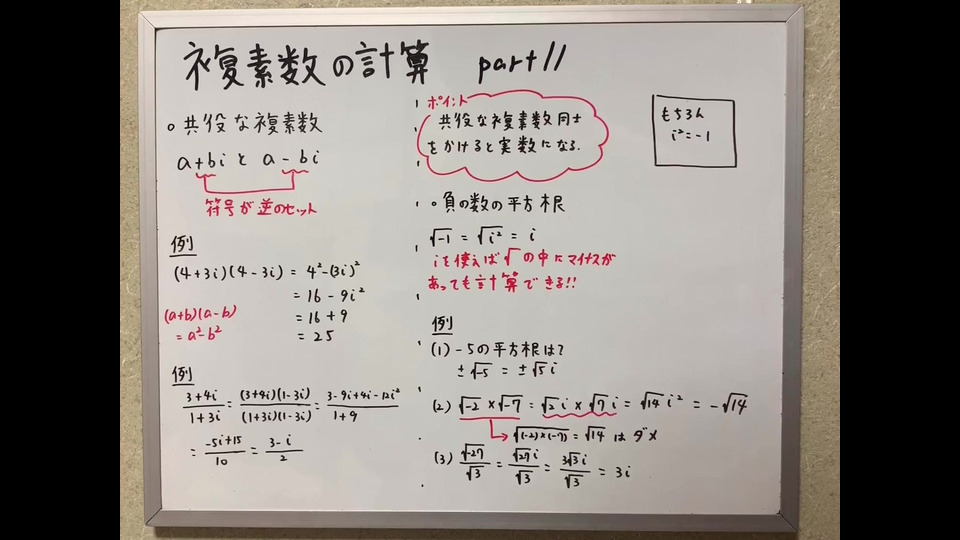 複素数の計算 part11
○共役な複素数
a+biとa-bi
符号が逆のセット
例
(4+3i)(4-3i) = 4²-(3i)²
= 16-9i²
= 16+9
= 25
(a+b)(a-b)
= a²-b²
例
(3+4i)/(1+3i) = (3+4i)(1-3i)/(1+3i)(1-3i) = (3-9i+4i-12i²)/(1+9)
= (-5i+15)/10 = (3-i)/2
ポイント
共役な複素数同士
をかけると実数になる.
○負の数の平方根
√-1 = √i² = i
iを使えば√の中にマイナスが
あっても計算できる!!
例
(1) -5の平方根は?
±√-5 = ±√5 i
(2) √-2 ×√-7 = √2 i ×√7 i = √14 i² = -√14
√(-2)×(-7) = √14 はダメ
(3) √-27/√3 = √27 i/√3 = 3√3 i/√3 = 3i
もちろん
i²=-1